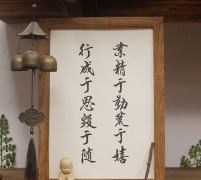 業精于勤荒于嬉
行成于思毀于隨